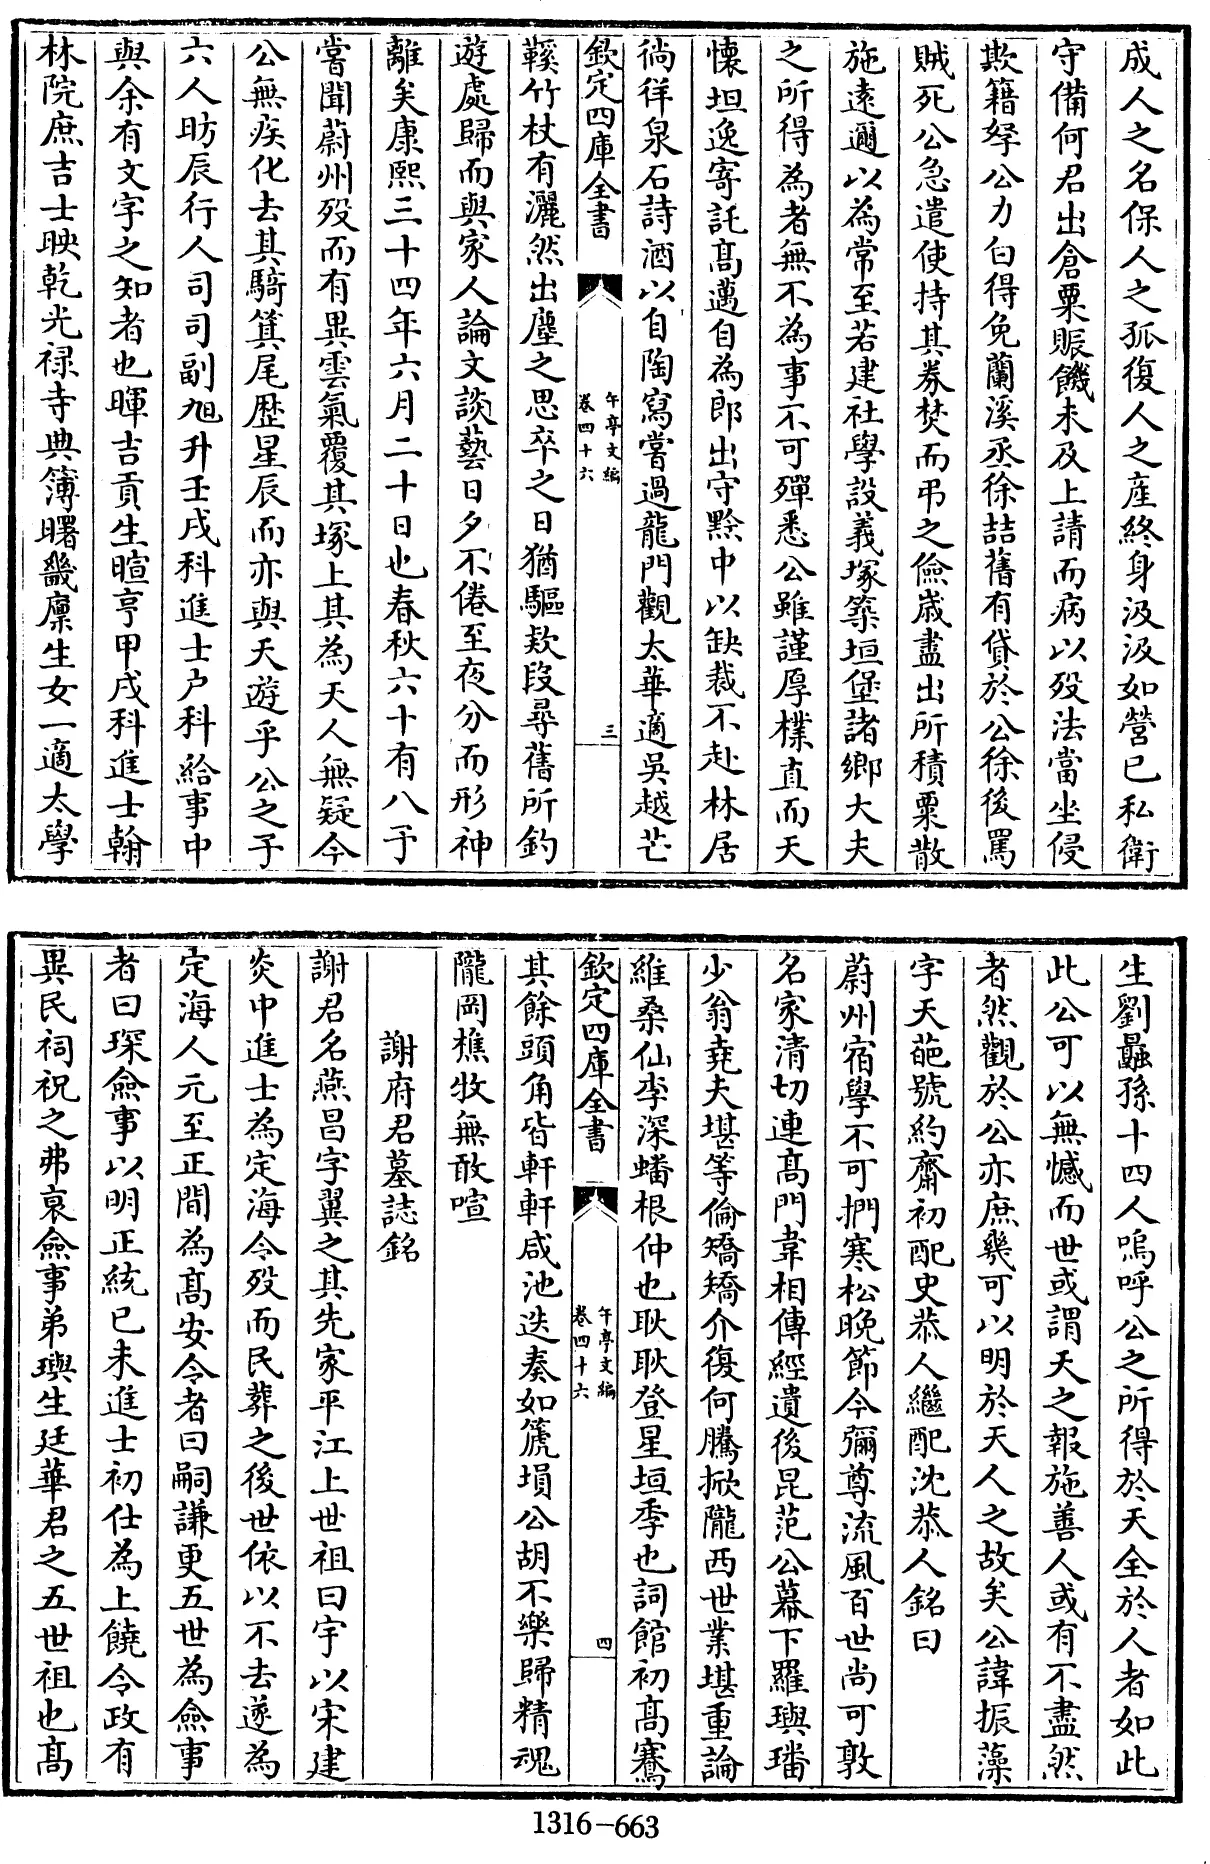 成人之名保人之孤復人之産終身汲汲如營已私衛
守備何君出倉粟賑饑未及上請而病以殁法當坐侵
欺籍孥公力白得免蘭溪丞徐喆舊有貸於公徐後罵
賊死公急遣使持其券焚而弔之儉歲盡出所積粟散
施遠邇以為常至若建社學設義塚築垣堡諸鄉大夫
之所得為者無不為事不可殫悉公雖謹厚樸直而天
懷坦逸寄託髙邁自為郎出守黔中以缺裁不赴林居
徜徉泉石詩酒以自陶寫嘗過龍門觀太華適吳越芒
欽定四庫全書
午亭文編
卷四十六
三
鞵竹杖有灑然出塵之思卒之日猶驅欵段尋舊所釣
遊處歸而與家人論文談藝日夕不倦至夜分而形神
離矣康熙三十四年六月二十日也春秋六十有八予
嘗聞蔚州殁而有異雲氣覆其塚上其為天人無疑今
公無疾化去其騎箕尾歴星辰而亦與天遊乎公之子
六人昉辰行人司司副旭升壬戌科進士户科給事中
與余有文字之知者也暉吉貢生暄亨甲戌科進士翰
林院庶吉士映乾光禄寺典簿曙畿廪生女一適太學
生劉鼂孫十四人嗚呼公之所得於天全於人者如此
此公可以無憾而世或謂天之報施善人或有不盡然
者然觀於公亦庶㡬可以明於天人之故矣公諱振藻
字天葩號約齋初配史恭人繼配沈恭人銘曰
蔚州宿學不可捫寒松晚節今彌尊流風百世尚可敦
名家清切連髙門韋相傳經遺後昆范公幕下羅璵璠
少翁堯夫堪等倫矯矯介復何騰掀隴西世業堪重論
維桑仙李深蟠根仲也耿耿登星垣季也詞館初髙騫
欽定四庫全書
午亭文編
卷四十六
四
其餘頭角皆軒軒咸池迭奏如箎塤公胡不樂歸精魂
隴岡樵牧無敢喧
謝府君墓誌銘
謝君名燕昌字翼之其先家平江上世祖曰宇以宋建
炎中進士為定海令殁而民葬之後世依以不去遂為
定海人元至正間為髙安令者曰嗣謙更五世為僉事
者曰琛僉事以明正統已未進士初仕為上饒令政有
異民祠祝之弗衰僉事弟璵生廷華君之五世祖也髙
1316-663